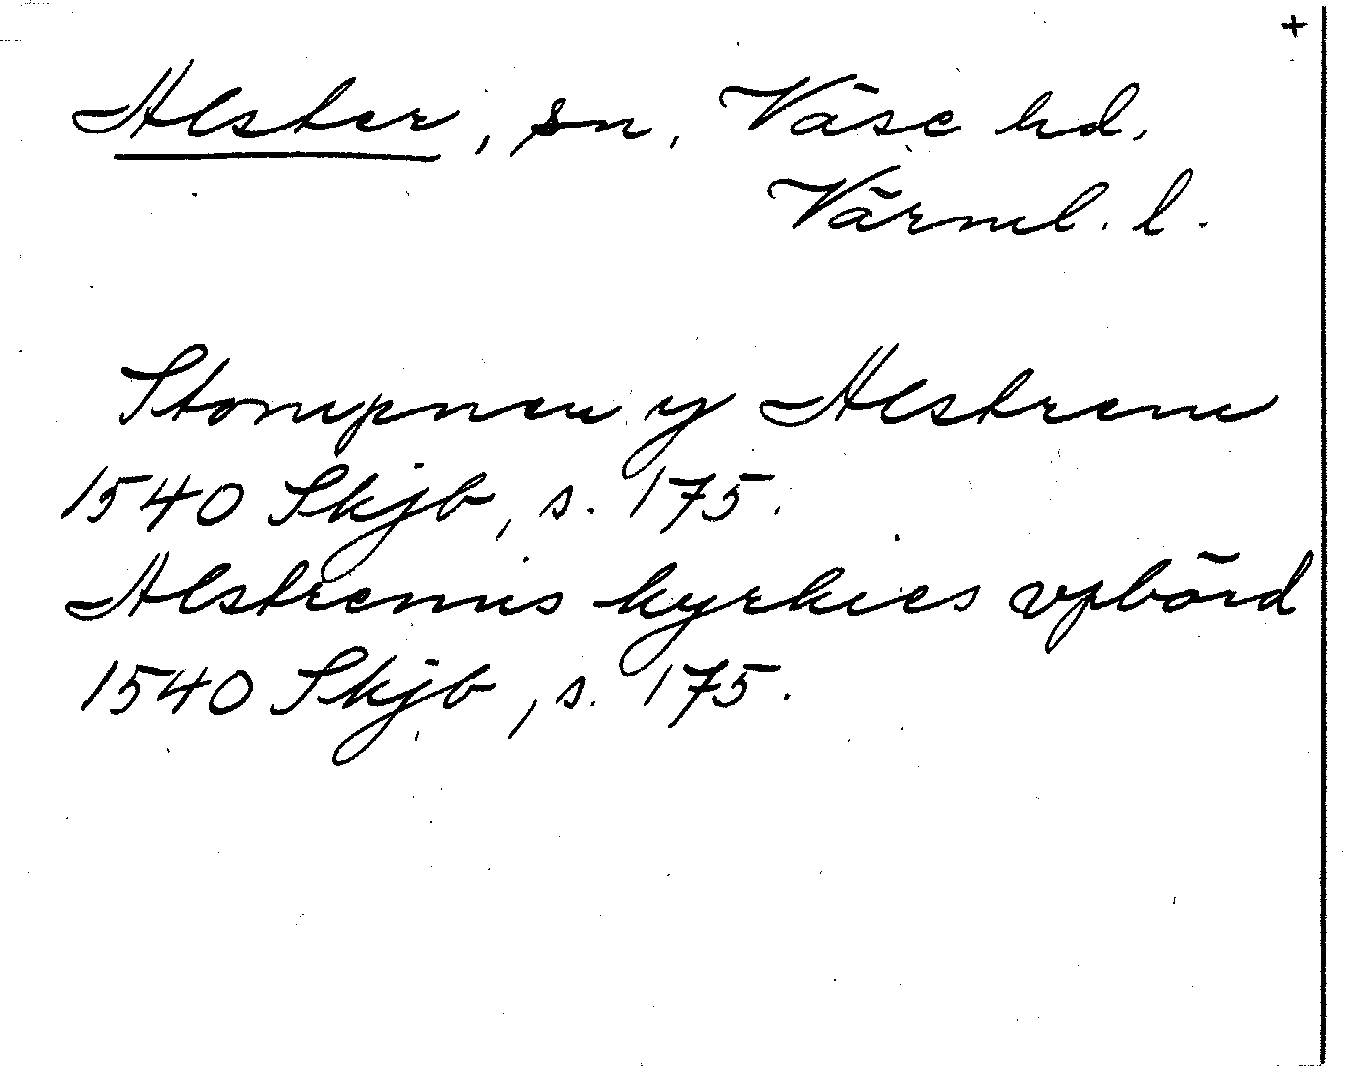 +
Alster, sn, Väse hd.
Värml. l.
Stompnen y Alstrem
1540 Skjb, s. 175.
Alstrems kyrkies vpbörd
1540 Skjb, s. 175.